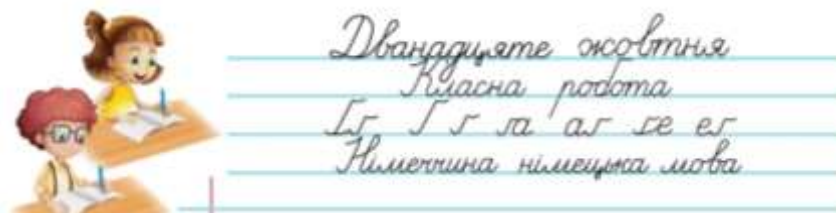 Дванадцяте жовтня
Класна робота
Ґґ Ґ ґ ґа аґ ґе еґ
Німеччина німецька мова